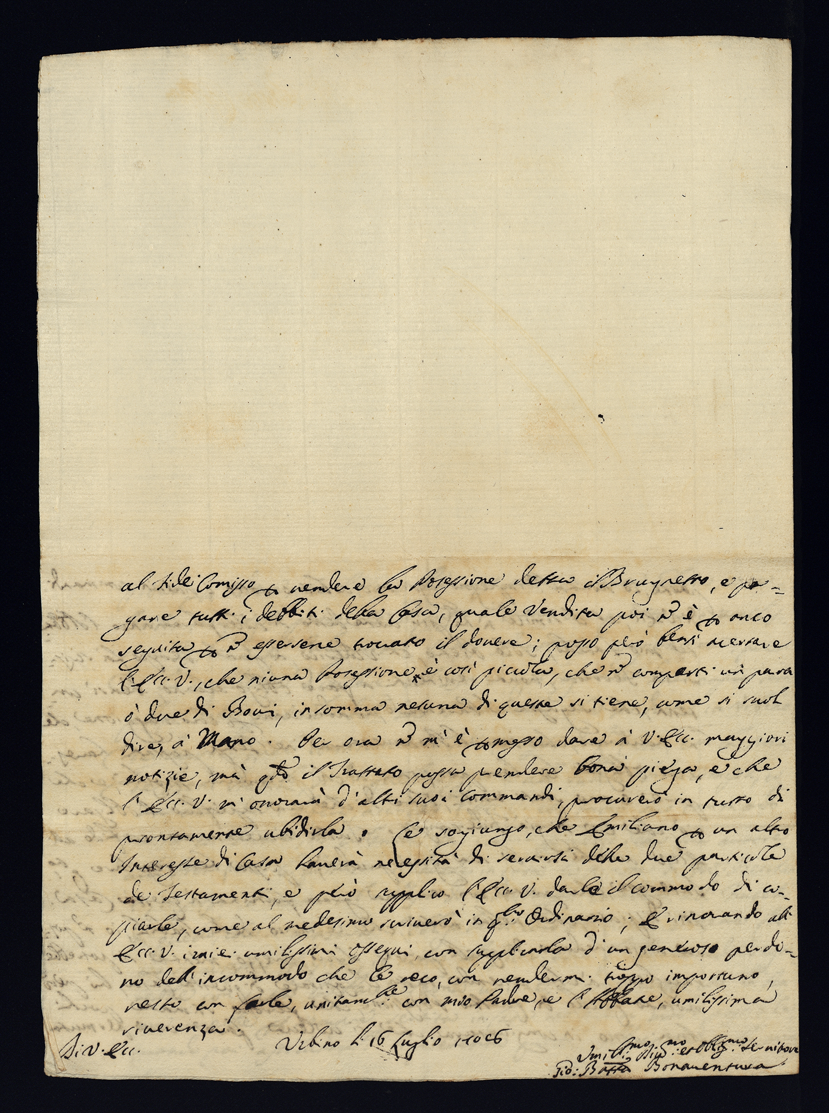 al fidei Comisso p vendere la Posessione detta il Brugnetto, e pa-
gare tutti i debbiti della Casa, quale Vendita poi nō è p anco
seguita p nō essersene trovato il dovere; posso però bensì accertare
l'Ecc. V., che niuna Posessione è così picciola, che nō comporti un para
ò due di Bovi, in somma nesuna di queste si tiene, come si suol
dire, à Mano. Per ora nō m'è pmesso dare à V. Ecc. maggiori
notizie, mà il Trattato possa prendere bona piega, e che
l'Ecc. V. m'onorarà d'altri suoi Commandi, procurerò in tutto di
prontamente ubidirla. Le sogiungo, che Emiliano p un altro
Interesse di Casa haverà necessità di servirsi delle due particole
de Testamenti, e però supplico l'Ecc. V. darle il commodo di co-
piarle, come al medesimo scriverò in Ordinario; E rinovando all'
Ecc. V. i miei umilissimi ossequi, con supplicarla d'un generoso perdo-
no dell'incommodo che le reco, con rendermi troppo importuno,
resto con farle, unitamte con mio Padre, e l'Abbate, umilissima
riverenza.
Di V. Ecc. Urbino li 16 Luglio
Umilmo Divmo et Obligmo Servitore
Gio: Batta Bonaventura